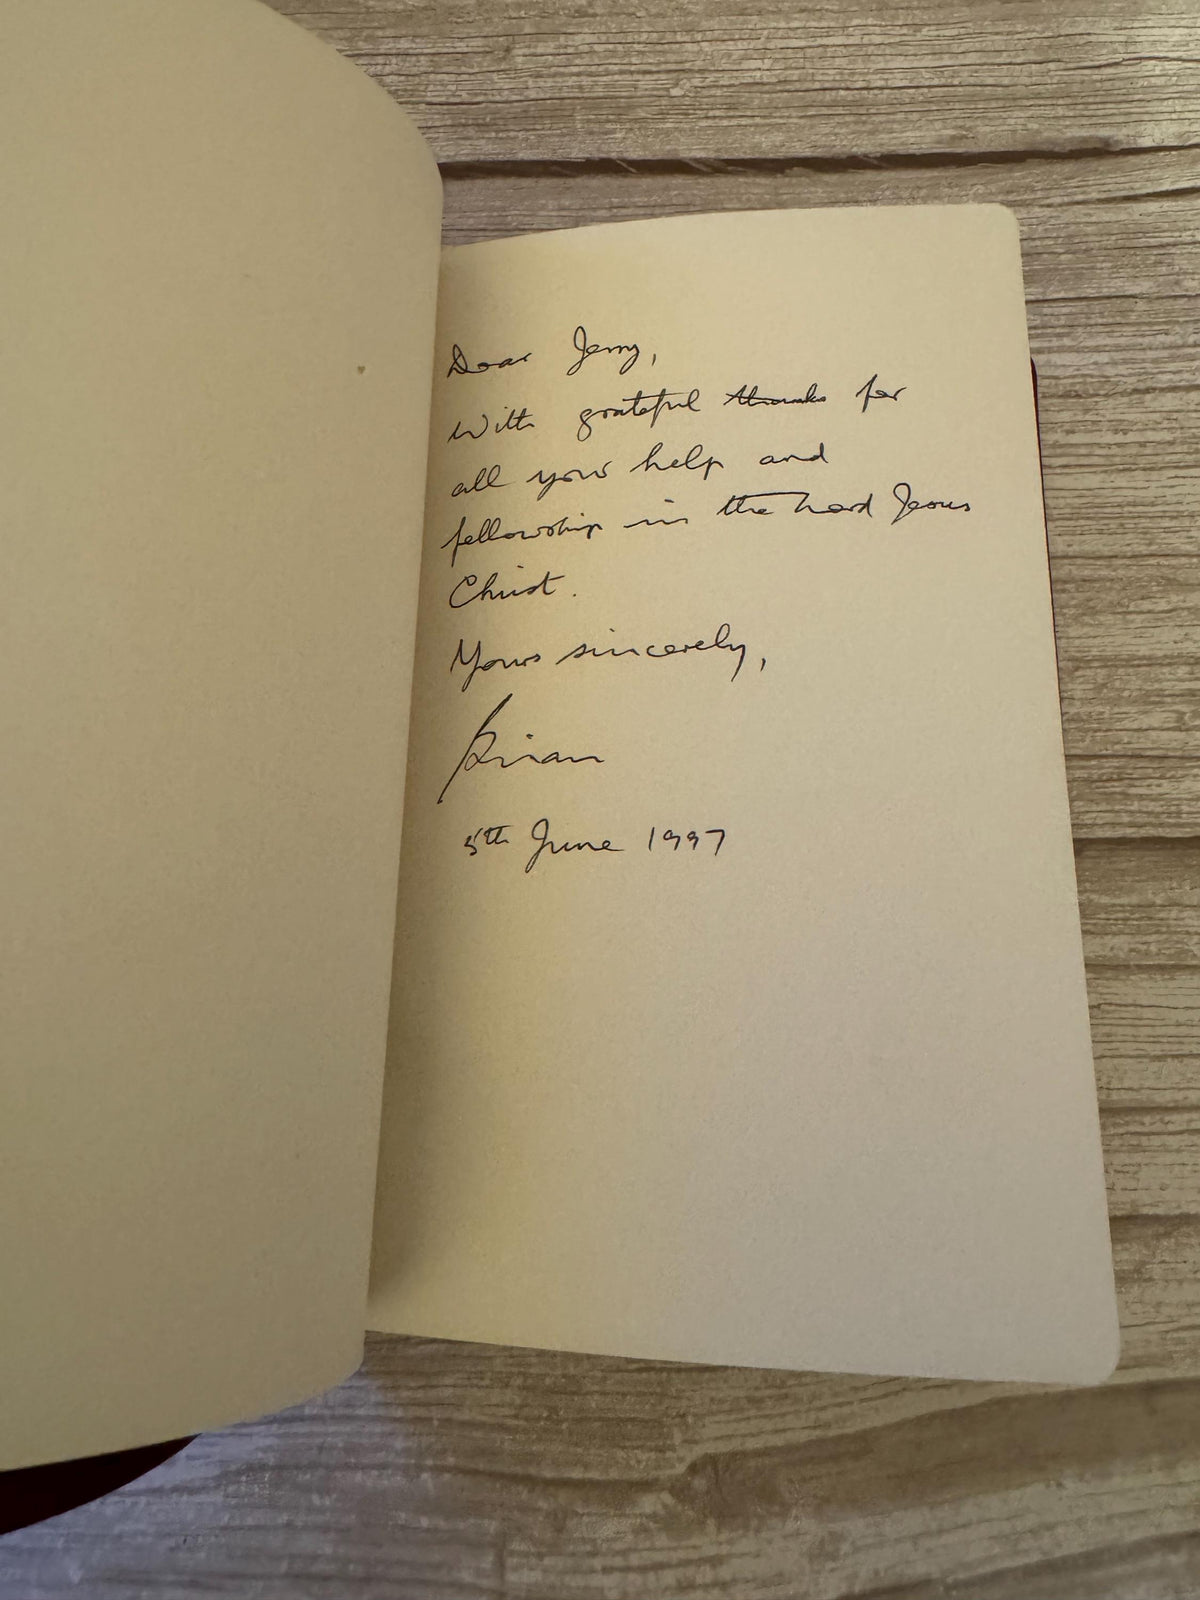 Dear Jerry,
With grateful thanks for
all your help and
fellowship in the Lord Jesus
Christ.
Yours sincerely,
Brian
5th June 1997